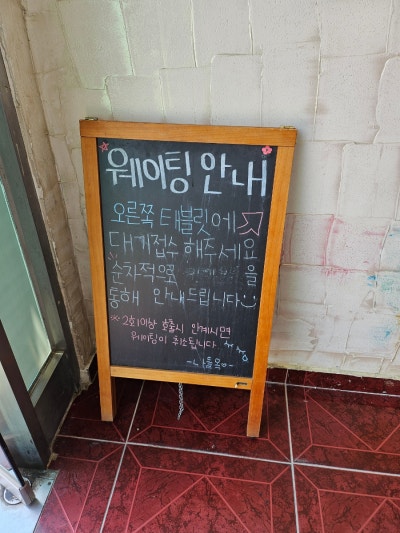 웨이팅 안내
오른쪽 태블릿에
대기접수 해주세요
순차적으로 을
통해 안내드립니다
2회이상 호출시 안계시면
웨이팅이 취소됩니다